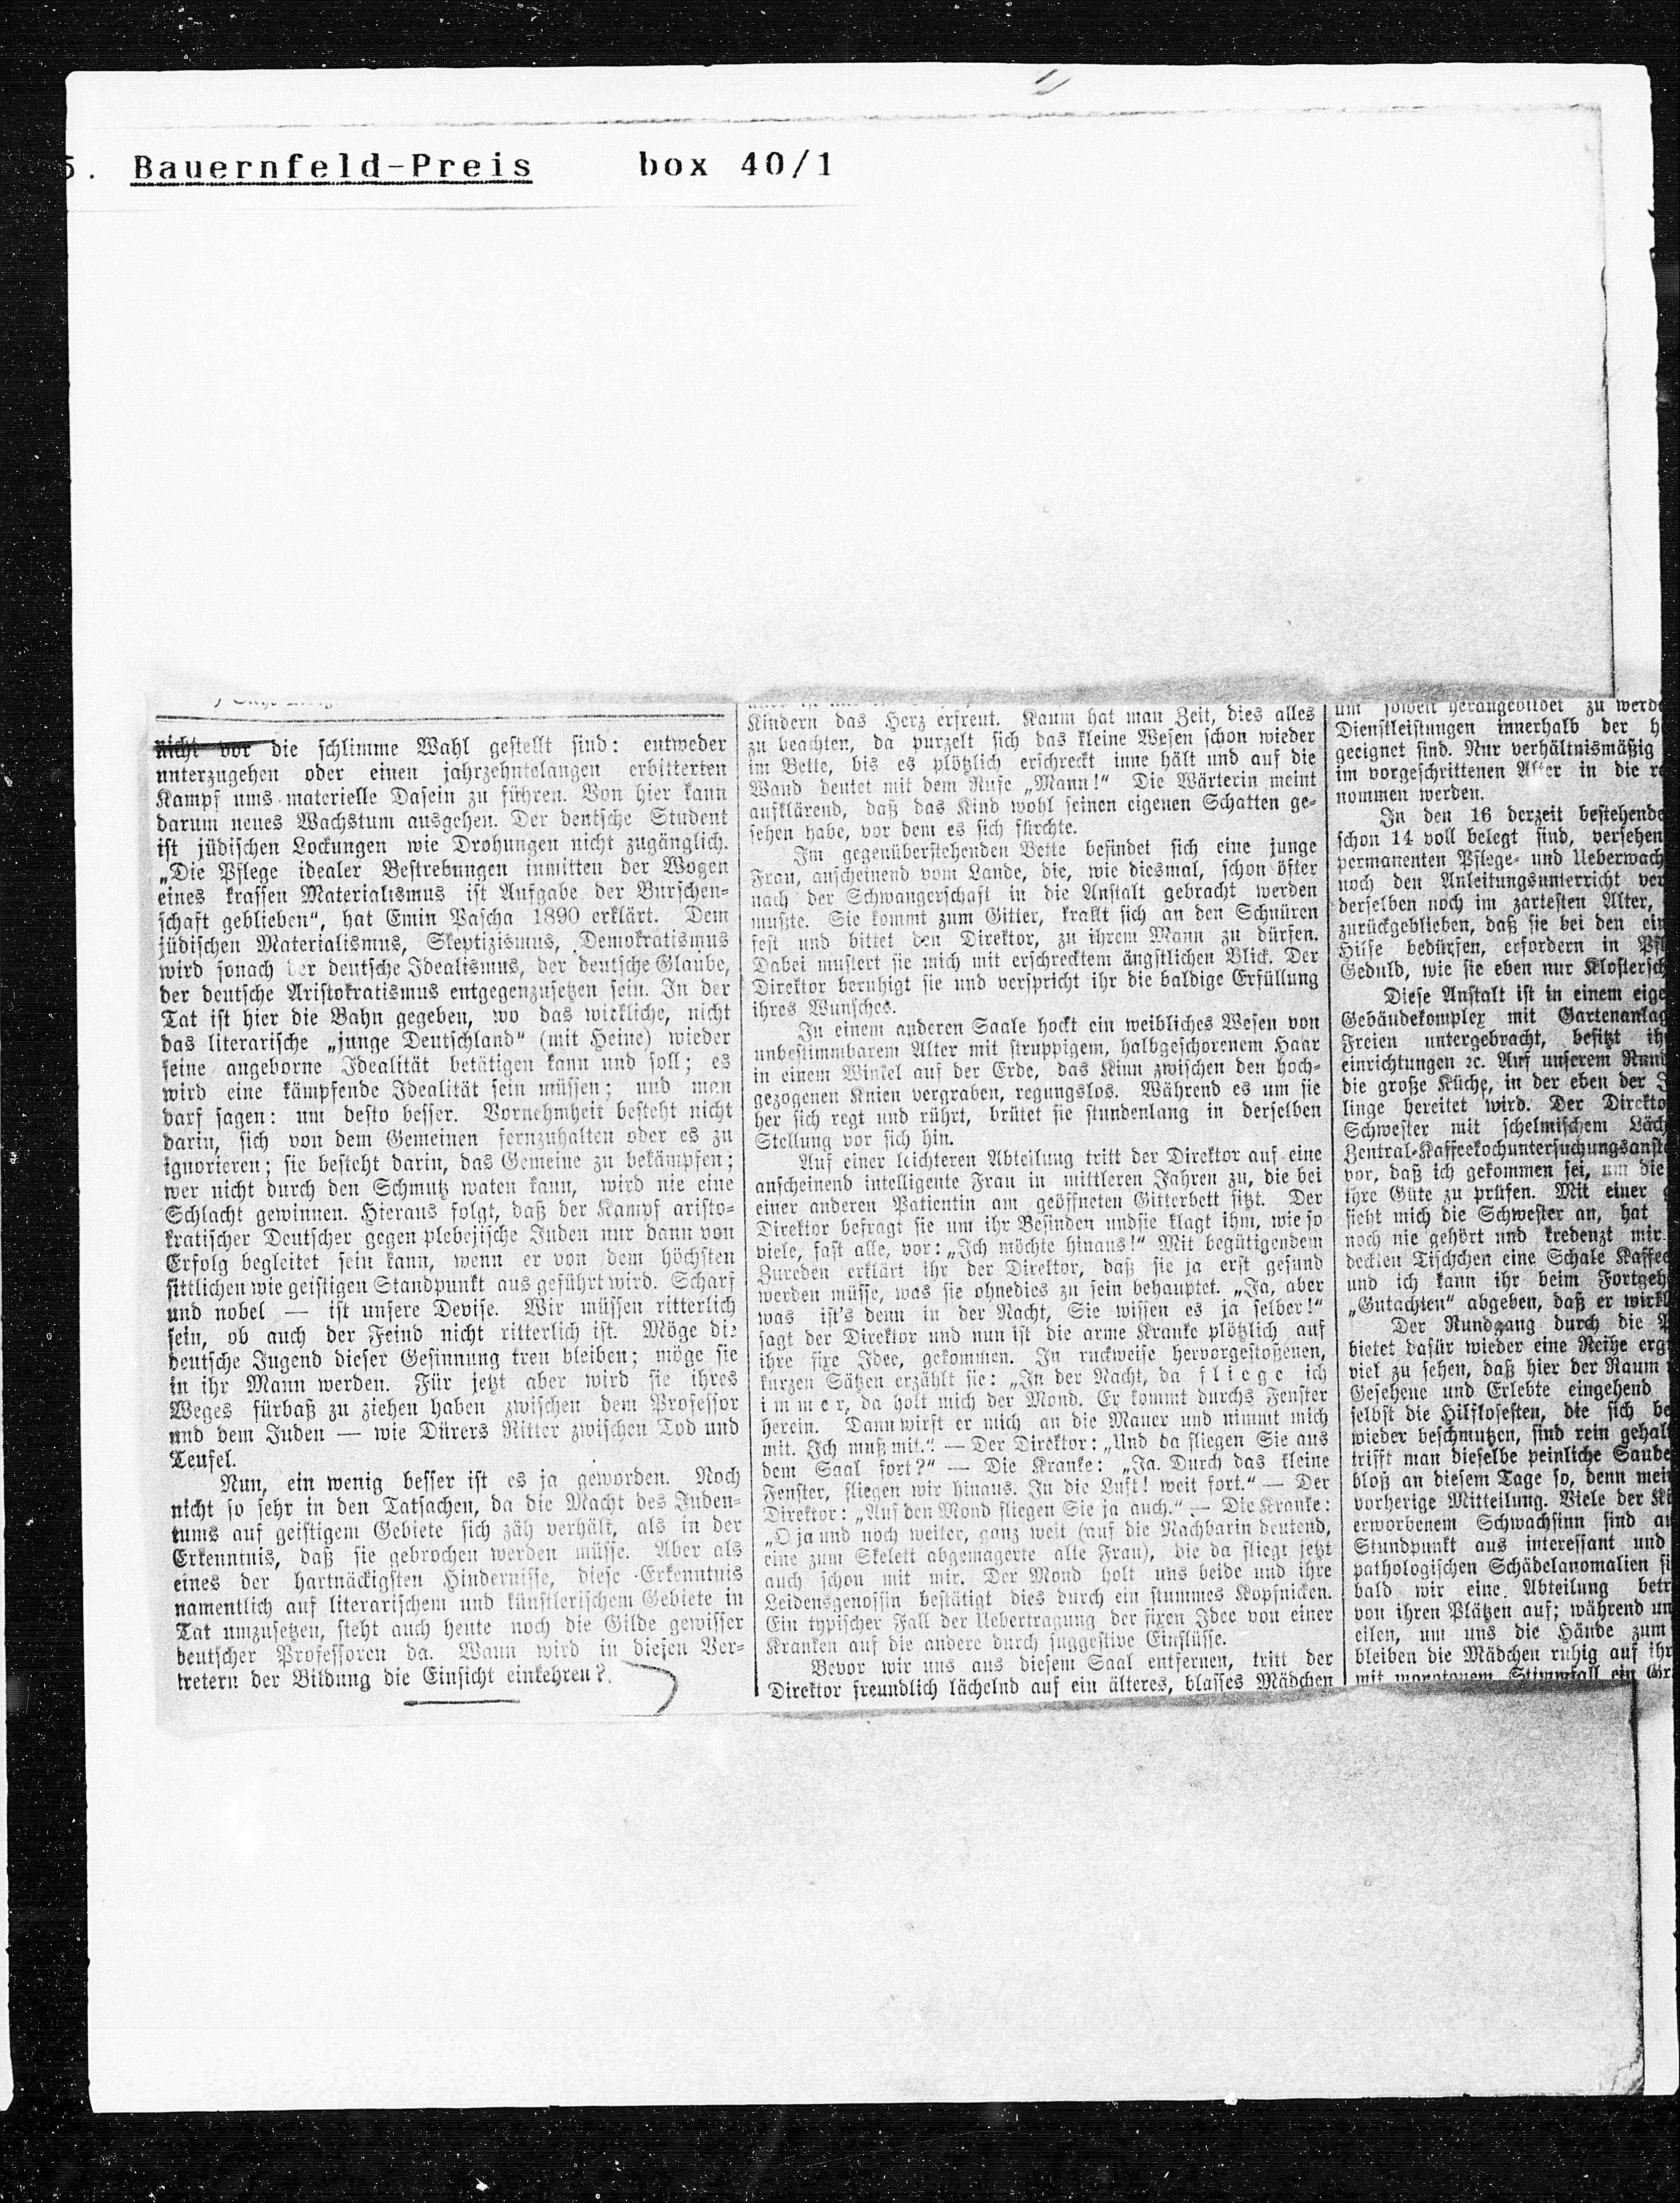 5. Bauernfeld-Preis box 40/1
nicht vor die schlimme Wahl gestellt sind: entweder
unterzugehen oder einen jahrzehntelangen erbitterten
Kampf ums materielle Dasein zu führen. Von hier kann
darum neues Wachstum ausgehen. Der deutsche Student
ist jüdischen Lockungen wie Drohungen nicht zugänglich.
„Die Pflege idealer Bestrebungen inmitten der Wogen
eines krassen Materialismus ist Aufgabe der Burschen-
schaft geblieben“, hat Emin Pascha 1890 erklärt. Dem
jüdischen Materialismus, Skeptizismus, Demokratismus
wird sonach der deutsche Idealismus, der deutsche Glaube,
der deutsche Aristokratismus entgegenzusetzen sein. In der
Tat ist hier die Bahn gegeben, wo das wirkliche, nicht
das literarische „junge Deutschland“ (mit Heine) wieder
seine angeborne Idealität betätigen kann und soll; es
wird eine kämpfende Idealität sein müssen; und man
darf sagen: um desto besser. Vornehmheit besteht nicht
darin, sich von dem Gemeinen fernzuhalten oder es zu
ignorieren; sie besteht darin, das Gemeine zu bekämpfen;
wer nicht durch den Schmutz waten kann, wird nie eine
Schlacht gewinnen. Hieraus folgt, daß der Kampf aristo-
kratischer Deutscher gegen plebejische Juden nur dann von
Erfolg begleitet sein kann, wenn er von dem höchsten
sittlichen wie geistigen Standpunkt aus geführt wird. Scharf
und nobel — ist unsere Devise. Wir müssen ritterlich
sein, ob auch der Feind nicht ritterlich ist. Möge die
deutsche Jugend dieser Gesinnung treu bleiben; möge sie
in ihr Mann werden. Für jetzt aber wird sie ihres
Weges fürbaß zu ziehen haben zwischen dem Professor
und dem Juden — wie Dürers Ritter zwischen Tod und
Teufel.
Nun, ein wenig besser ist es ja geworden. Noch
nicht so sehr in den Tatsachen, da die Macht des Juden-
tums auf geistigem Gebiete sich zäh verhält, als in der
Erkenntnis, daß sie gebrochen werden müsse. Aber als
eines der hartnäckigsten Hindernisse, diese Erkenntnis
namentlich auf literarischem und künstlerischem Gebiete in
Tat umzusetzen, steht auch heute noch die Gilde gewisser
deutscher Professoren da. Wann wird in diesen Ver-
tretern der Bildung die Einsicht einkehren?
Kindern das Herz erfreut. Kaum hat man Zeit, dies alles
zu beachten, da purzelt sich das kleine Wesen schon wieder
im Bette, bis es plötzlich erschreckt inne hält und auf die
Wand deutet mit dem Rufe „Mann!“ Die Wärterin meint
aufklärend, daß das Kind wohl seinen eigenen Schatten ge-
sehen habe, vor dem es sich fürchte.
Im gegenüberstehenden Bette befindet sich eine junge
Frau, anscheinend vom Lande, die, wie diesmal, schon öfter
nach der Schwangerschaft in die Anstalt gebracht werden
mußte. Sie kommt zum Gitter, krallt sich an den Schnüren
fest und bittet den Direktor, zu ihrem Mann zu dürfen.
Dabei mustert sie mich mit erschrecktem ängstlichen Blick. Der
Direktor beruhigt sie und verspricht ihr die baldige Erfüllung
ihres Wunsches.
In einem anderen Saale hockt ein weibliches Wesen von
unbestimmbarem Alter mit struppigem, halbgeschorenem Haar
in einem Winkel auf der Erde, das Kinn zwischen den hoch-
gezogenen Knien vergraben, regungslos. Während es um sie
her sich regt und rührt, brütet sie stundenlang in derselben
Stellung vor sich hin.
Auf einer leichteren Abteilung tritt der Direktor auf eine
anscheinend intelligente Frau in mittleren Jahren zu, die bei
einer anderen Patientin am geöffneten Gitterbett sitzt. Der
Direktor befragt sie um ihr Befinden und sie klagt ihm, wie so
viele, fast alle, vor: „Ich möchte hinaus!“ Mit begütigendem
Zureden erklärt ihr der Direktor, daß sie ja erst gesund
werden müsse, was sie ohnedies zu sein behauptet. „Ja, aber
was ist's denn in der Nacht, Sie wissen es ja selber!“
sagt der Direktor und nun ist die arme Kranke plötzlich auf
ihre fixe Idee, gekommen. In ruckweise hervorgestoßenen,
kurzen Sätzen erzählt sie: „In der Nacht, da fliege ich
immer, da holt mich der Mond. Er kommt durchs Fenster
herein. Dann wirft er mich an die Mauer und nimmt mich
mit. Ich muß mit.“ — Der Direktor: „Und da fliegen Sie aus
dem Saal fort?“ — Die Kranke: „Ja. Durch das kleine
Fenster, fliegen wir hinaus. In die Luft! weit fort.“ — Der
Direktor: „Auf den Mond fliegen Sie ja auch.“ — Die Kranke:
„O ja und noch weiter, ganz weit (auf die Nachbarin deutend,
eine zum Skelett abgemagerte alte Frau), die da fliegt jetzt
auch schon mit mir. Der Mond holt uns beide und ihre
Leidensgenossin bestätigt dies durch ein stummes Kopfnicken.
Ein typischer Fall der Uebertragung der fixen Idee von einer
Kranken auf die andere durch suggestive Einflüsse.
Bevor wir uns aus diesem Saal entfernen, tritt der
Direktor freundlich lächelnd auf ein älteres, blasses Mädchen
um soweit herangebildet zu werde
Dienstleistungen innerhalb der h
geeignet sind. Nur verhältnismäßig
im vorgeschrittenen Alter in die
nommen werden.
In den 16 derzeit bestehende
schon 14 voll belegt sind, versehen
permanenten Pflege- und Ueberwach
noch den Anleitungsunterricht ver
derselben noch im zartesten Alter,
zurückgeblieben, daß sie bei den ein
Hilfe bedürfen, erfordern in Pfl
Geduld, wie sie eben nur Klostersch
Diese Anstalt ist in einem eige
Gebäudekomplex mit Gartenanlag
Freien untergebracht, besitzt ih
einrichtungen ꝛc. Auf unserem Run
die große Küche, in der eben der
linge bereitet wird. Der Direkto
Schwester mit schelmischem Läch
Zentral-Kaffeekochuntersuchungsanst
vor, daß ich gekommen sei, um die
ihre Güte zu prüfen. Mit einer
sieht mich die Schwester an, hat
noch nie gehört und kredenzt mir
deckten Tischchen eine Schale Kaffee
und ich kann ihr beim Fortgeh
„Gutachten“ abgeben, daß er wirkl
Der Rundgang durch die
bietet dafür wieder eine Reihe erg
viel zu sehen, daß hier der Raum
Gesehene und Erlebte eingehend
selbst die Hilflosesten, die sich be
wieder beschmutzen, sind rein gehal
trifft man dieselbe peinliche Saube
bloß an diesem Tage so, denn mein
vorherige Mitteilung. Viele der Ki
erworbenem Schwachsinn sind au
Stundpunkt aus interessant und
pathologischen Schädelanomalien si
bald wir eine Abteilung betr
von ihren Plätzen auf; während un
eilen, um uns die Hände zum
bleiben die Mädchen ruhig auf ihr
mit monotonem Stimmfall ein Gr